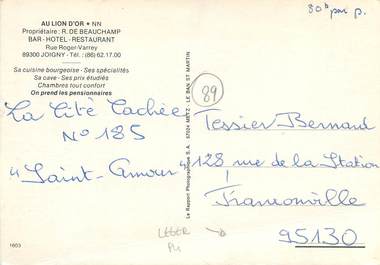 AU LION D'OR ★ NN
Propriétaire : R. DE BEAUCHAMP
BAR - HOTEL - RESTAURANT
Rue Roger-Varrey
89300 JOIGNY - Tél. : (86) 62.17.00
Sa cuisine bourgeoise - Ses spécialités
Sa cave - Ses prix étudiés
Chambres tout confort
On prend les pensionnaires
La Cité Cachée
N° 185
"Saint-Amour"
1603
Le Rapport Photographique S.A. 57024 METZ - LE BAN ST MARTIN
89
Tessier Bernard
128 rue de la Station
Franconville
95130